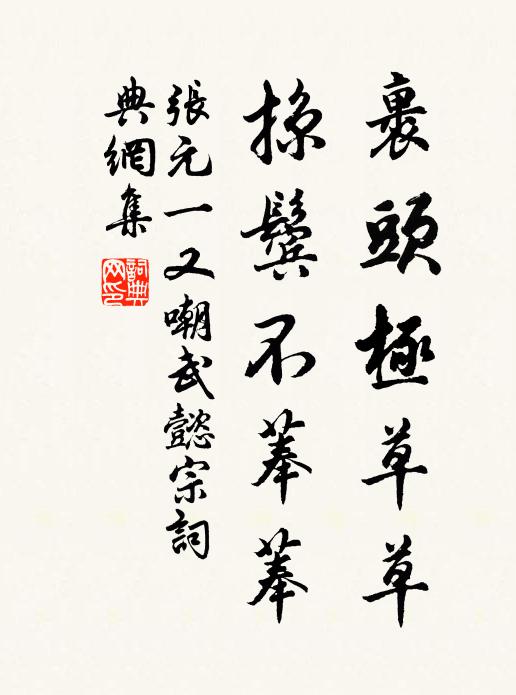 裹頭極草草
掠鬢不菶菶
張元一又嘲武懿宗詞
典網集
詞典
网印